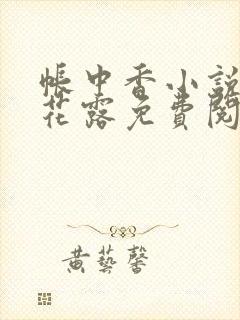 帳中香小說
花露免費閱
黃藝馨